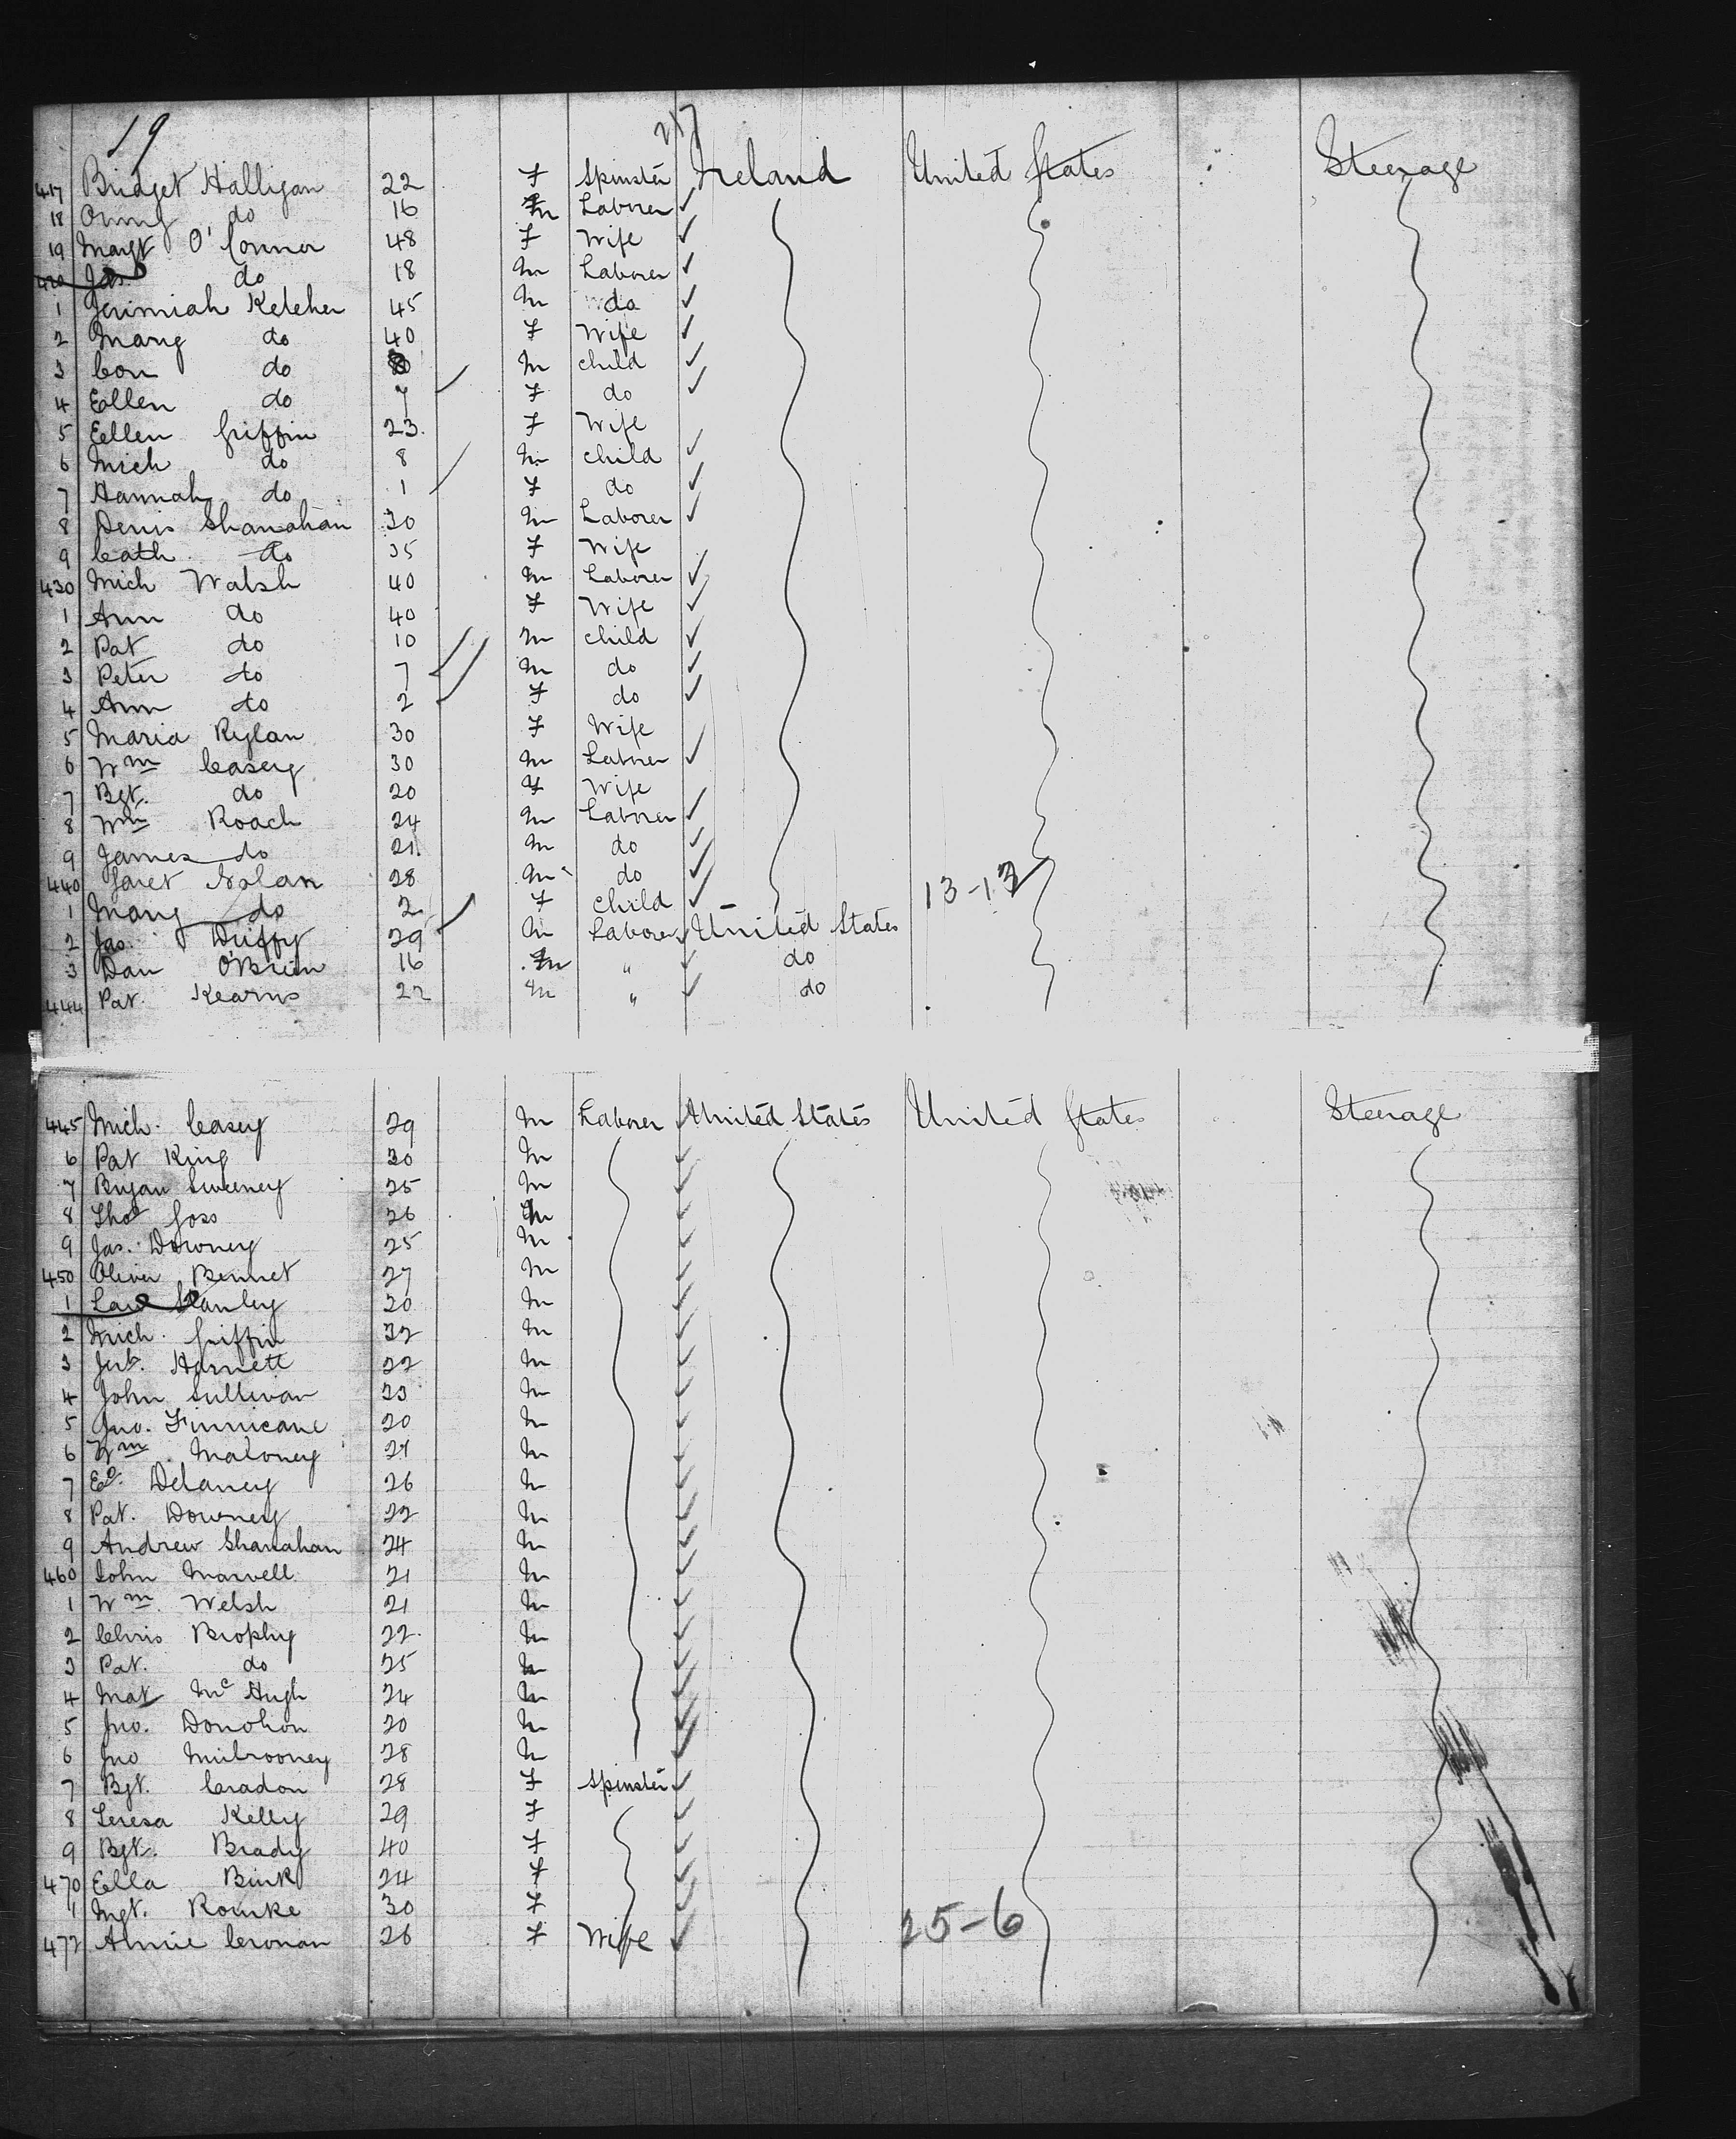 19
217
417 Bridget Halligan 22 F Spinster Ireland United States Steerage
18 do 16 m Laborer
19 Margt O'Connor 48 F Wife
420 Jas. do 18 m Laborer
1 Jerimiah Keleher 45 m do
2 Mary do 40 F Wife
3 Con do 8 m child
4 Ellen do 7 F do
5 Ellen Griffin 23 F Wife
6 Mich do 8 m child
7 Hannah do 1 F do
8 Denis Shanahan 30 m Laborer
9 Cath do 35 F Wife
430 Mich Walsh 40 m Laborer
1 Ann do 40 F Wife
2 Pat do 10 m child
3 Peter do 7 m do
4 Ann do 2 F do
5 Maria Rylan 30 F Wife
6 Wm Casey 30 m Laborer
7 Bgt. do 20 F Wife
8 Wm Roach 24 m Laborer
9 James do 21 m do
440 Garet Nolan 28 m do 13-13
1 Mary do 2 F child
2 Jas. Duffy 29 m Laborer United States
3 Dan O'Brien 16 m " do
444 Pat. Kearns 22 m " do
445 Mich. Casey 29 m Laborer United States United States Steerage
6 Pat King 30 m
7 Bryan Sweeney 25 m
8 Thos Goss 26 m
9 Jas. Downey 25 m
450 Oliver Bennet 27 m
1 Law Stanley 20 m
2 Mich. Griffin 32 m
3 Harnett 22 m
4 John Sullivan 23 m
5 Jno. Finnicane 20 m
6 Wm Maloney 27 m
7 Ed. Delaney 26 m
8 Pat. Downey 22 m
9 Andrew Shanahan 24 m
460 John Marvell 21 m
1 Wm. Welsh 21 m
2 Chris Brophy 22 m
3 Pat. do 25 m
4 Mat McHugh 24 m
5 Jno. Donohon 20 m
6 Jno Mulrooney 28 m
7 Bgt. Cradon 28 F Spinster
8 Teresa Kelly 29 F
9 Bgt. Brady 40 F
470 Ella Bink 24 F
1 Mgt. Rourke 30 F
472 Annie Cronan 26 F Wife 25-6